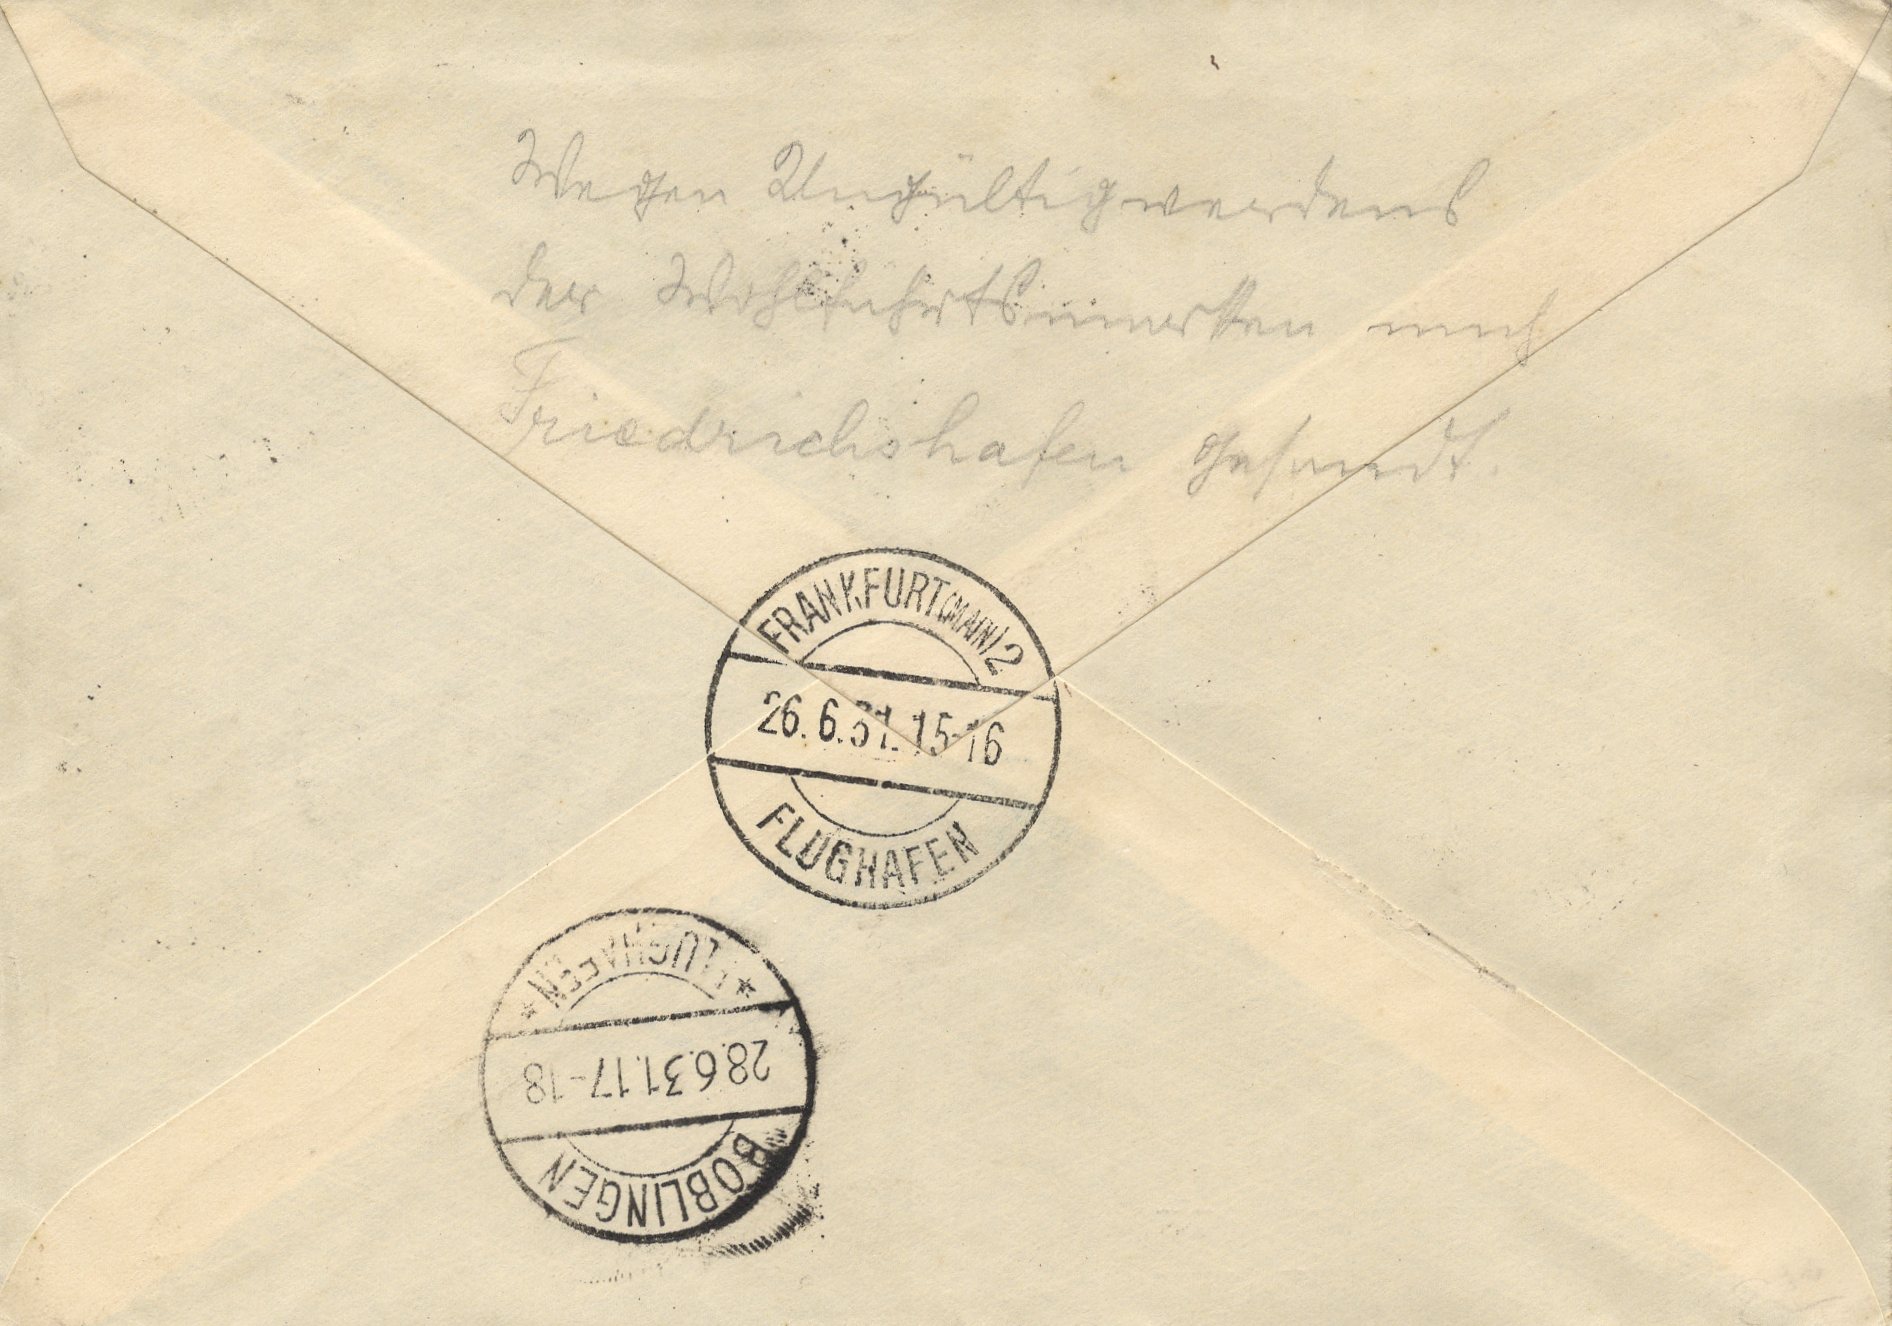 Wegen Ungültigwerdens
der Wohlfahrtsmarken nach
Friedrichshafen gesandt.
FRANKFURT (MAIN) 2
26.6.31.15-16
FLUGHAFEN
BÖBLINGEN
28.6.31.17-18
* FLUGHAFEN *